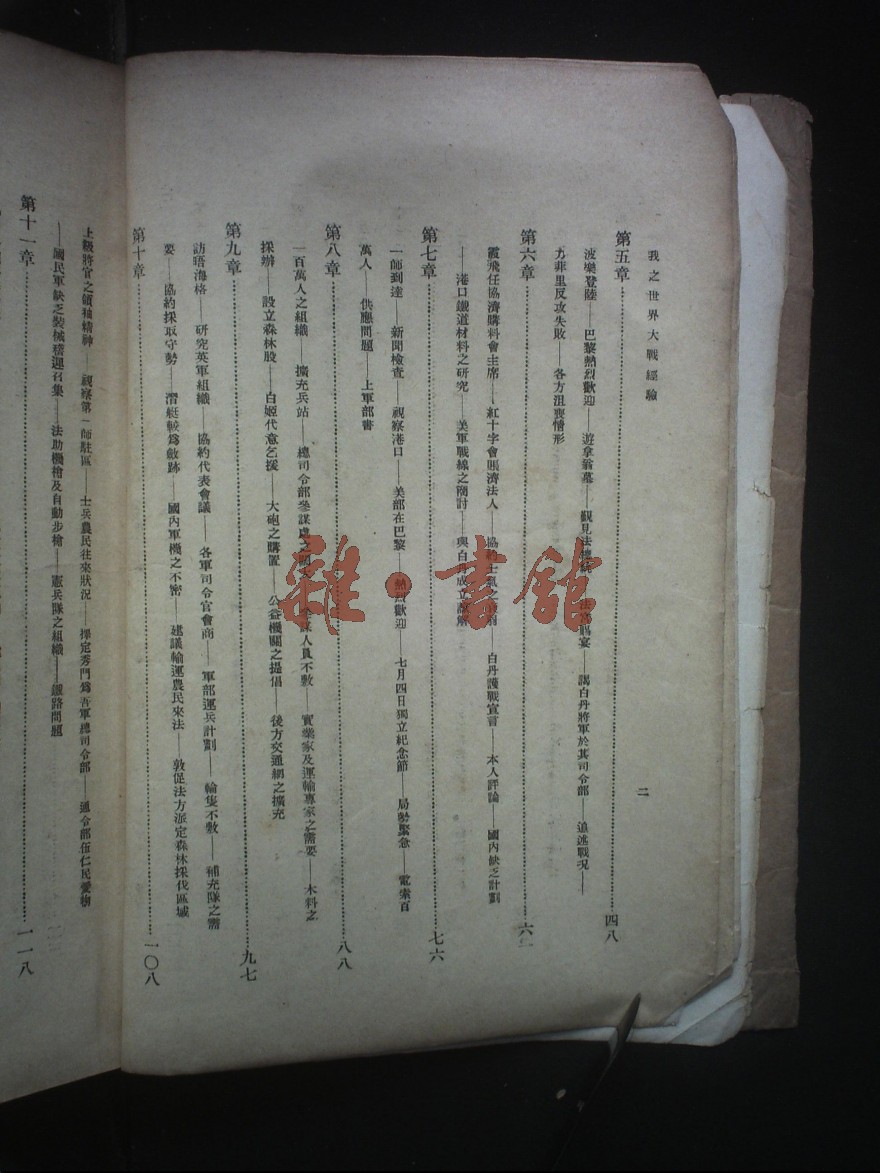 我之世界大戰經驗
二
第五章……四八
波樂登陸——巴黎熱烈歡迎——遊拿翁墓——觀見法總統——法宮賜宴——謁白丹將軍於其司令部——追述戰況——
力非里反攻失敗——各方沮喪情形
第六章……六二
霞飛任協濟購料會主席——紅十字會賑濟法人——協約士氣之——白丹護戰宣言——本人評論——國內缺乏計劃
——港口鐵道材料之研究——美軍戰線之商討——與白成立諒解
第七章……七六
一師到達——新聞檢查——視察港口——美部在巴黎——熱烈歡迎——七月四日獨立紀念節——局勢緊急——電索百
萬人——供應問題——上軍部書
第八章……八八
一百萬人之組織——擴充兵站——總司令部參謀處之——人員不敷——實業家及運輸專家之需要——木料之
採辦——設立森林股——白姬代意乞援——大砲之購置——公益機關之提倡——後方交通網之擴充
第九章……九七
訪晤海格——研究英軍組織——協約代表會議——各軍司令官會商——軍部運兵計劃——輪隻不敷——補充隊之需
要——協約採取守勢——潛艇較為斂跡——國內軍機之不密——建議輸運農民來法——敦促法方派定森林採伐區域
第十章……一〇八
上級將官之領袖精神——視察第一師駐區——士兵農民往來狀況——擇定秀門為吾軍總司令部——通令部伍仁民愛物
——國民軍缺乏裝械稽遲召集——法助機槍及自動步槍——憲兵隊之組織——鐵路問題
第十一章……一一八
雜·書館